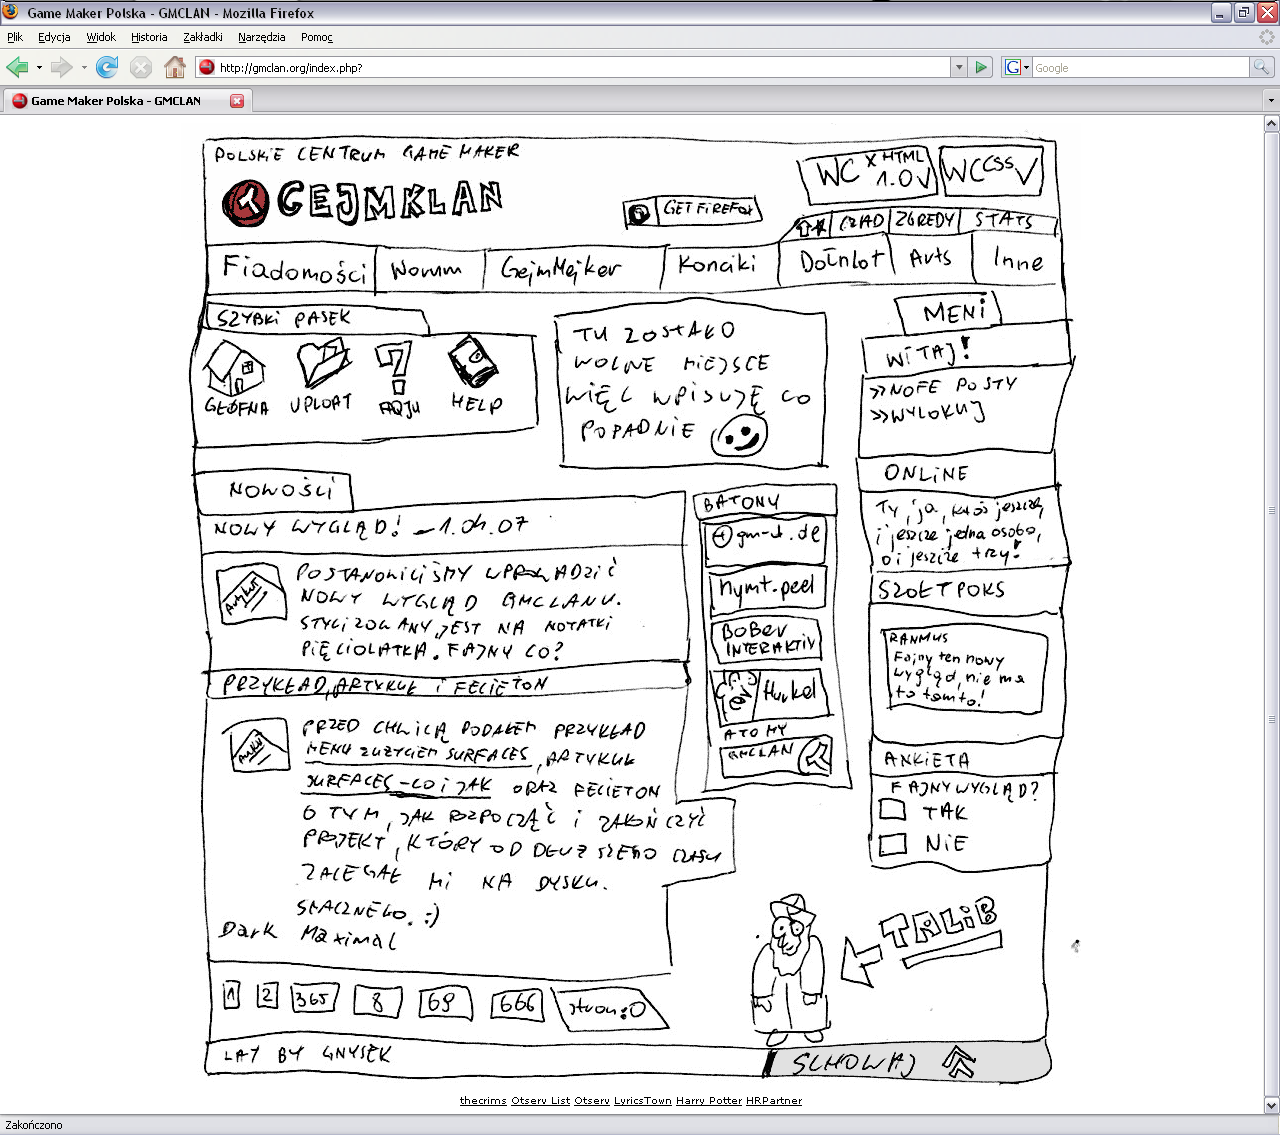 Game Maker Polska - GMCLAN - Mozilla Firefox
Plik Edycja Widok Historia Zakładki Narzędzia Pomoc
http://gmclan.org/index.php?
Google
Game Maker Polska - GMCLAN
POLSKIE CENTRUM GAME MAKER
WC XHTML 1.0 V
WC CSS V
GEJMKLAN
GET FIREFOX
CZAD ZGREDY STATS
Fiadomości Worum GejmMejker Konciki Dołnlot Arts Inne
SZYBKI PASEK
GŁÓFNA UPLOAT FAQJU HELP
TU ZOSTAŁO
WOLNE MIEJSCE
WIĘC WPISUJĘ CO
POPADNIE
MENI
WITAJ!
>>NOFE POSTY
>>WYLOKUJ
ONLINE
Ty, ja, ktoś jeszcze,
i jeszcze jedna osoba,
o i jeszcze trzy!
SZOŁTPOKS
RANMUS
Fajny ten nowy
wygląd, nie ma
to tamto!
ANKIETA
FAJNY WYGLĄD?
TAK
NIE
NOWOŚCI
NOWY WYGLĄD! - 1.04.07
Artykuł
POSTANOWILIŚMY WPROWADZIĆ
NOWY WYGLĄD GMCLANU.
STYLIZOWANY JEST NA NOTATKI
PIĘCIOLATKA. FAJNY CO?
PRZYKŁAD, ARTYKUŁ i FELIETON
PRZED CHWILĄ PODAŁEM PRZYKŁAD
MENU Z UŻYCIEM SURFACES, ARTYKUŁ
SURFACES - CO i JAK ORAZ FELIETON
O TYM, JAK ROZPOCZĄĆ i ZAKOŃCZYĆ
PROJEKT, KTÓRY OD DŁUŻSZEGO CZASU
ZALEGAŁ MI NA DYSKU.
SMACZNEGO. :)
Dark Maximal
BATONY
gm-d.de
nymt.peel
BOBER
INTERAKTIV
Hurkel
ATOMY
GMCLAN
TALIB
1 2 365 8 69 666 stron:0
LAY BY GNYSEK
SCHOWAJ
thecrims Otserv List Otserv LyricsTown Harry Potter HRPartner
Zakończono